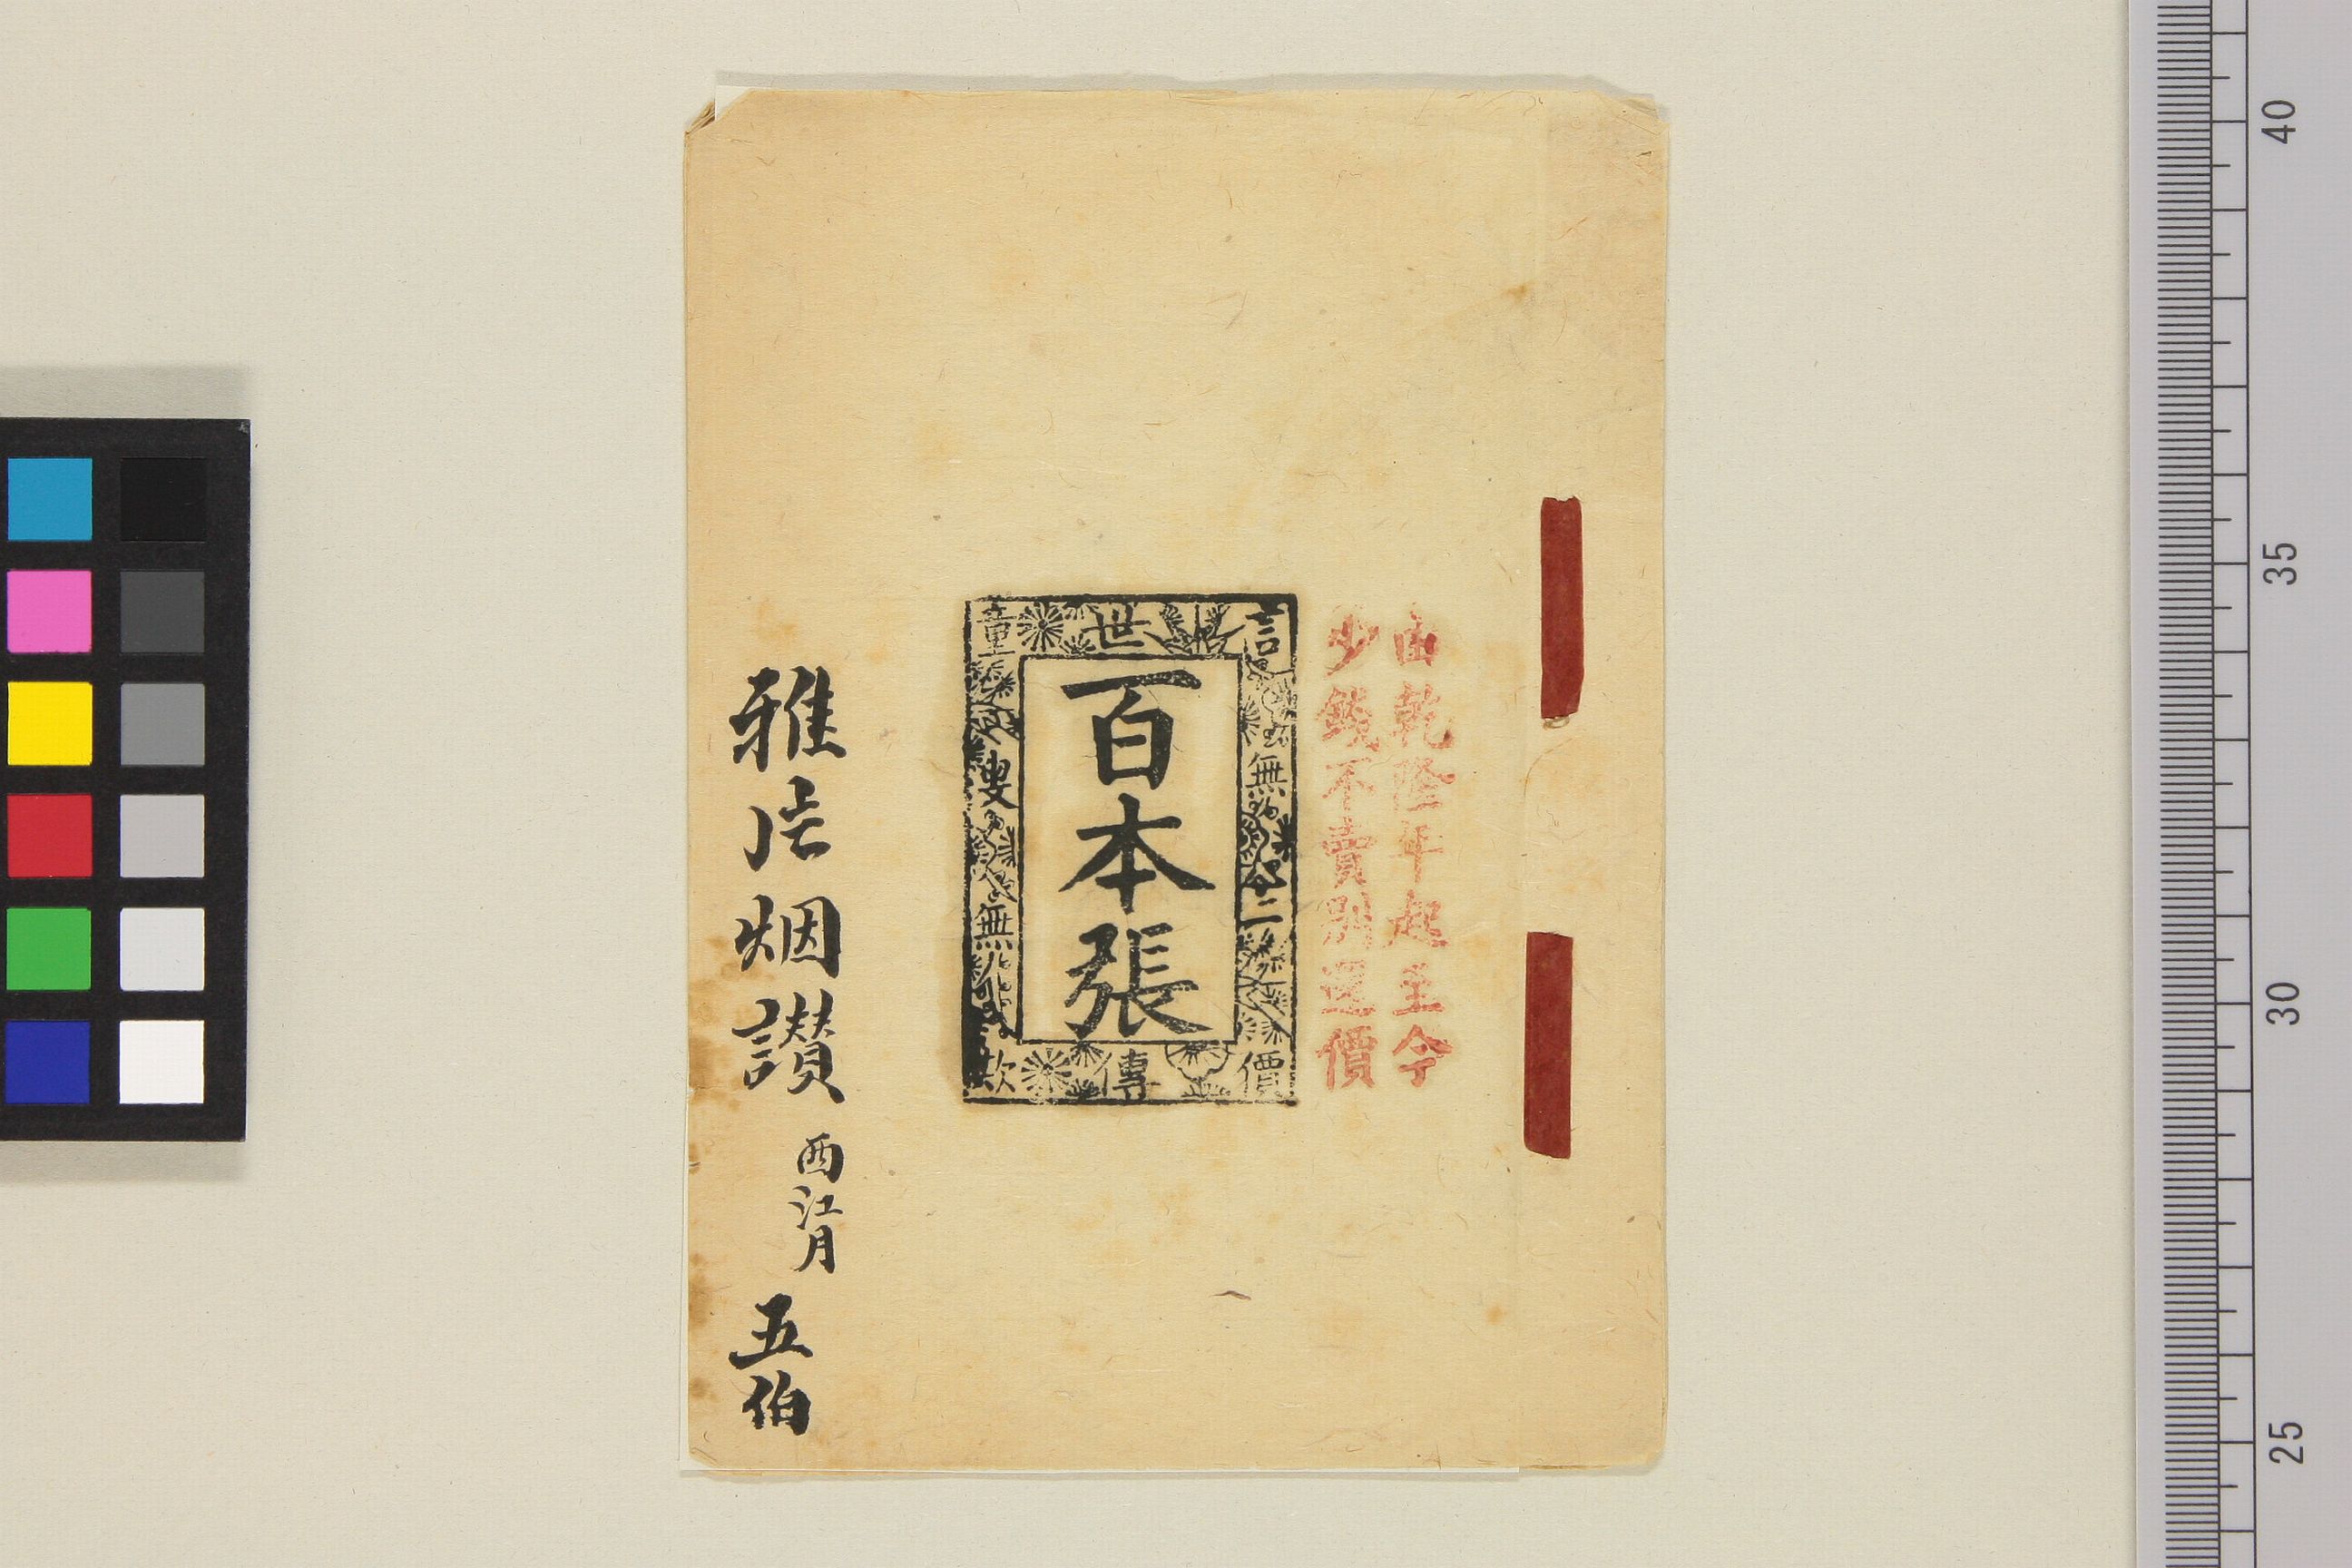 由乾隆年起至今
少錢不賣別還價
言無二價
世傳
童叟無欺
百本張
雅片烟讃 西江月 五伯
40
35
30
25